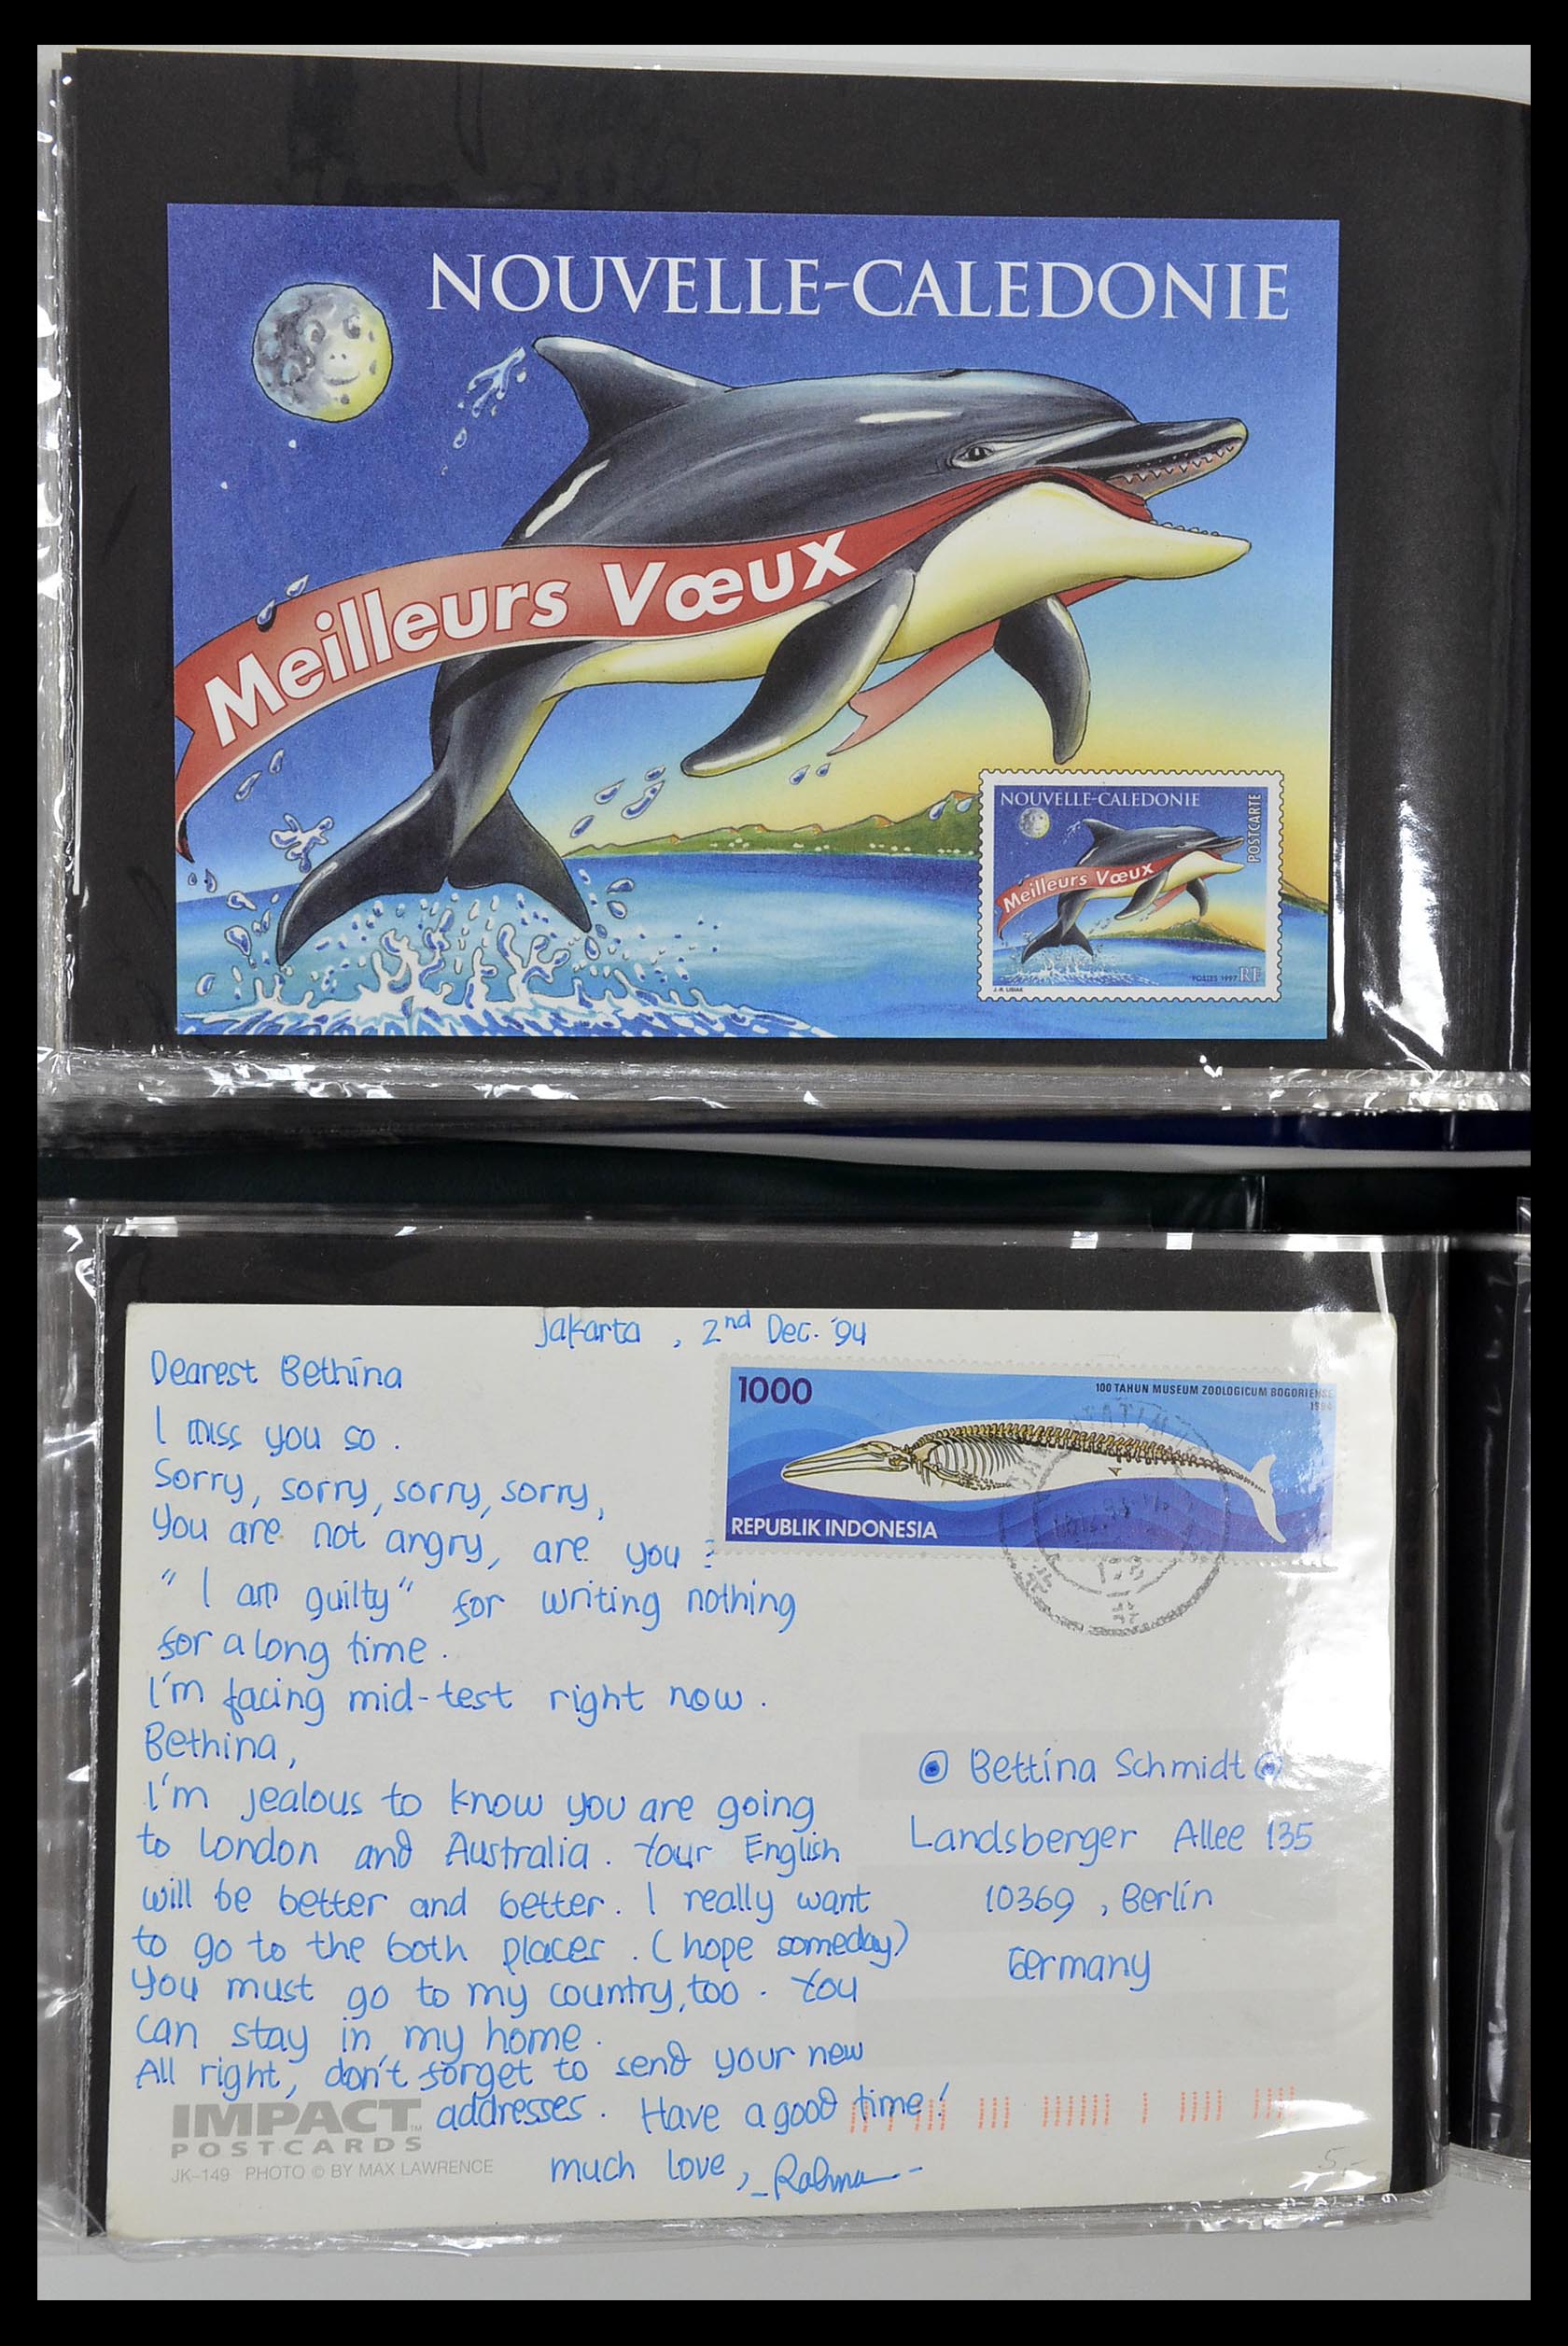 NOUVELLE-CALEDONIE
Meilleurs Vœux
NOUVELLE-CALEDONIE
POSTCARTE
Meilleurs Vœux
POSTES 1997 RF
J.-R. LISIAK
Jakarta , 2nd Dec. '94
Dearest Bethina
I miss you so .
Sorry, sorry, sorry, sorry,
You are not angry, are you ?
" I am guilty" for writing nothing
for a long time .
I'm facing mid-test right now .
Bethina,
I'm jealous to know you are going
to London and Australia . Your English
will be better and better . I really want
to go to the both places . ( hope someday)
You must go to my country, too . You
can stay in my home .
All right, don't forget to send your new
addresses . Have a good time !
much love,
1000
100 TAHUN MUSEUM ZOOLOGICUM BOGORIENSE
1994
REPUBLIK INDONESIA
Bettina Schmidt
Landsberger Allee 135
10369 , Berlin
Germany
IMPACT™
POSTCARDS
JK-149 PHOTO © BY MAX LAWRENCE
5,-